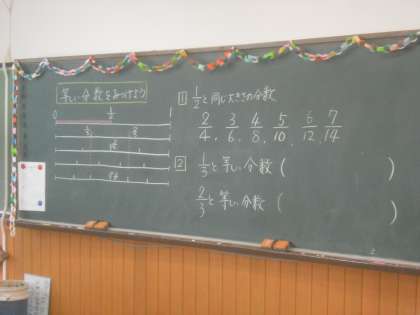 等しい分数をみつけよう
0 1/2 1
1 1/2と同じ大きさの分数
2/4, 3/6, 4/8, 5/10, 6/12, 7/14
2 1/3と等しい分数( )
2/3と等しい分数( )